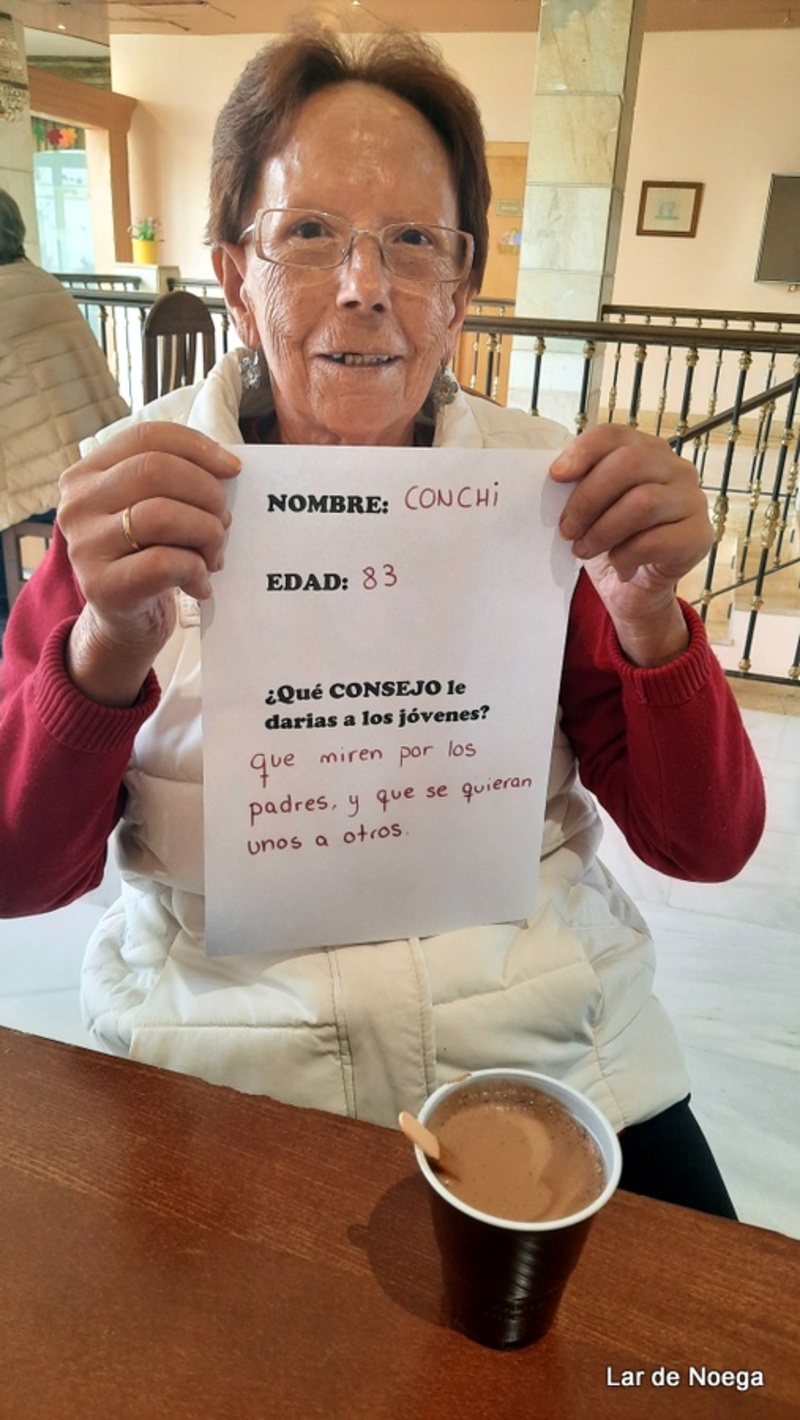 NOMBRE: CONCHi
EDAD: 83
¿Qué CONSEJO le
darias a los jóvenes?
que miren por los
padres, y que se quieran
unos a otros.
Lar de Noega